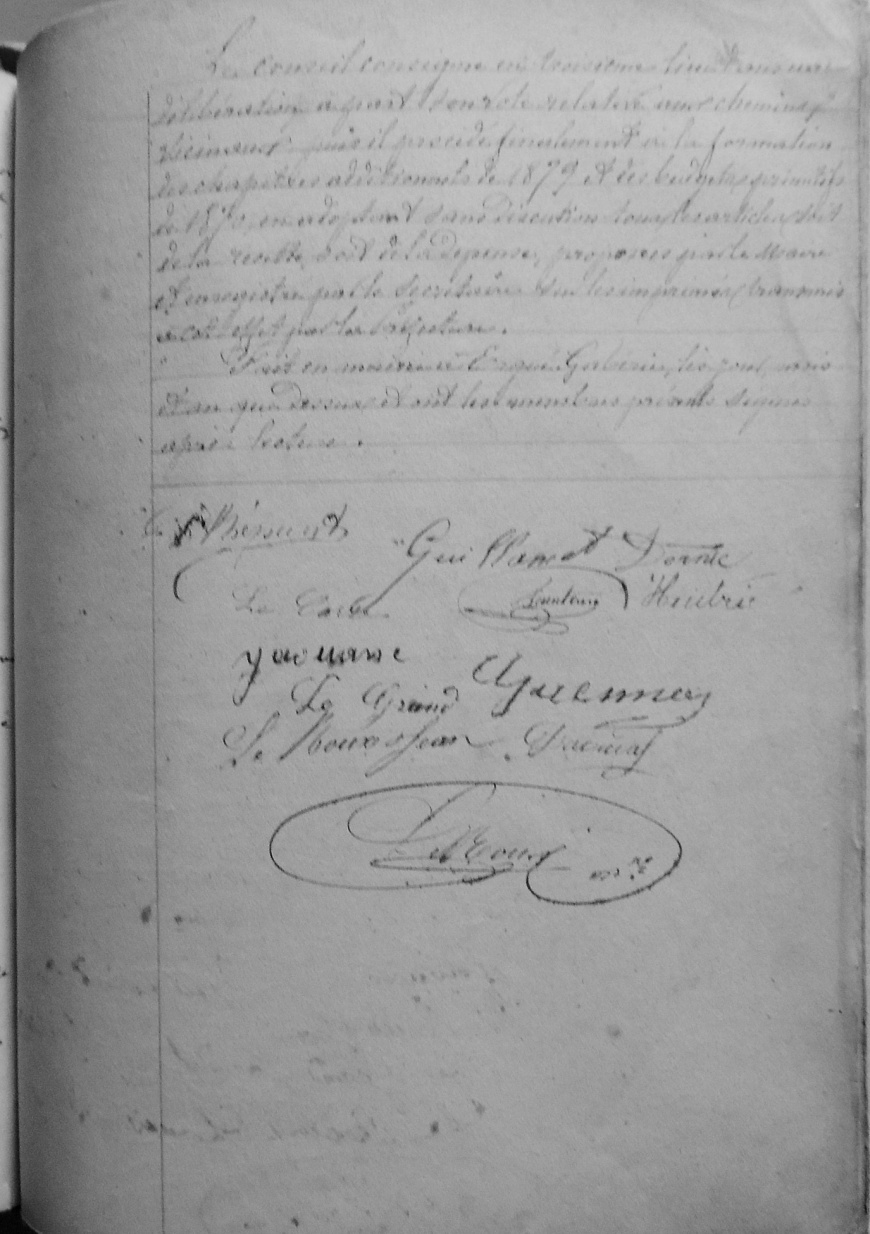 Le conseil consigne en troisième lieu dans une
délibération à part son vote relatif aux chemins
vicinaux puis il procède finalement à la formation
des chapitres additionnels de 1879 et des budgets primitifs
de 18 en adoptant sans discution tous les articles soit
de la recette, soit de la depense, proposés par le Maire
et enregistrés par le Secrétaire sur les imprimés transmis
à cet effet par la Préfecture.
Fait en mairie à Ergué-Gabéric, les jour, mois
et an que dessus et ont les membres présents signés
après lecture.
Guillamet Dornic
Le
Yaouanc
Le Grand Guennec
Le Roux Jean
Le Roux mre